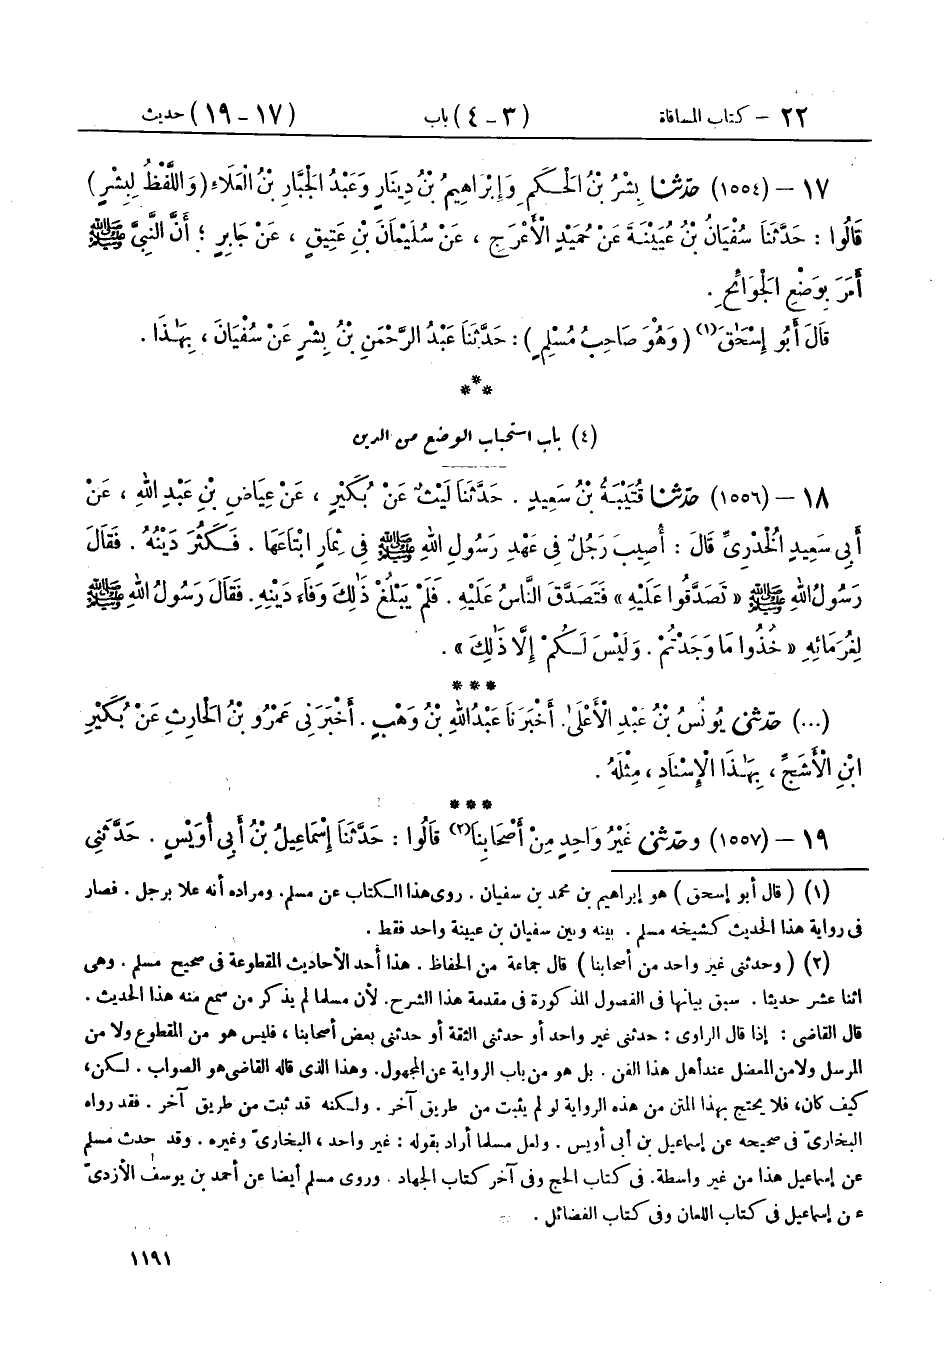 ٢٢ – كتاب المساقاة (٣ – ٤) باب (١٧ – ١٩) حديث
١٧ – (١٥٥٤) حدّثنا بِشْرُ بْنُ الْحَكَمِ وَإِبْرَاهِيمُ بْنُ دِينَارٍ وَعَبْدُ الْجَبَّارِ بْنُ الْعَلَاءِ (وَاللَّفْظُ لِبِشْرٍ)
قَالُوا : حَدَّثَنَا سُفْيَانُ بْنُ عُيَيْنَةَ عَنْ حُمَيْدٍ الْأَعْرَجِ ، عَنْ سُلَيْمَانَ بْنِ عَتِيقٍ ، عَنْ جَابِرٍ ؛ أَنَّ النَّبِيَّ ﷺ
أَمَرَ بِوَضْعِ الْجَوَائِحِ .
قَالَ أَبُو إِسْحَٰقَ(١) ( وَهُوَ صَاحِبُ مُسْلِمٍ ) : حَدَّثَنَا عَبْدُ الرَّحْمَنِ بْنُ بِشْرٍ عَنْ سُفْيَانَ ، بِهَٰذَا .
***
(٤) باب استحباب الوضع من الدين
١٨ – (١٥٥٦) حدّثنا قُتَيْبَةُ بْنُ سَعِيدٍ . حَدَّثَنَا لَيْثٌ عَنْ بُكَيْرٍ ، عَنْ عِيَاضِ بْنِ عَبْدِ اللهِ ، عَنْ
أَبِي سَعِيدٍ الْخُدْرِيِّ قَالَ : أُصِيبَ رَجُلٌ فِي عَهْدِ رَسُولِ اللهِ ﷺ فِي ثِمَارٍ ابْتَاعَهَا . فَكَثُرَ دَيْنُهُ . فَقَالَ
رَسُولُ اللهِ ﷺ « تَصَدَّقُوا عَلَيْهِ » فَتَصَدَّقَ النَّاسُ عَلَيْهِ . فَلَمْ يَبْلُغْ ذَٰلِكَ وَفَاءَ دَيْنِهِ. فَقَالَ رَسُولُ اللهِ ﷺ
لِغُرَمَائِهِ « خُذُوا مَا وَجَدْتُمْ . وَلَيْسَ لَكُمْ إِلَّا ذَٰلِكَ » .
***
(...) حدّثني يُونُسُ بْنُ عَبْدِ الْأَعْلَىٰ. أَخْبَرَنَا عَبْدُ اللهِ بْنُ وَهْبٍ . أَخْبَرَنِي عَمْرُو بْنُ الْحَارِثِ عَنْ بُكَيْرِ
ابْنِ الْأَشَجِّ ، بِهَٰذَا الْإِسْنَادِ ، مِثْلَهُ .
***
١٩ – (١٥٥٧) وحدّثني غَيْرُ وَاحِدٍ مِنْ أَصْحَابِنَا(٢) قَالُوا : حَدَّثَنَا إِسْمَاعِيلُ بْنُ أَبِي أُوَيْسٍ . حَدَّثَنِي
(١) ( قال أبو إسحق ) هو إبراهيم بن محمد بن سفيان . روى هذا الكتاب عن مسلم. ومراده أنه علا برجل . فصار
فى رواية هذا الحديث كشيخه مسلم . بينه وبين سفيان بن عيينة واحد فقط .
(٢) ( وحدثنى غير واحد من أصحابنا ) قال جماعة من الحفاظ . هذا أحد الأحاديث المقطوعة فى صحيح مسلم . وهى
اثنا عشر حديثا . سبق بيانها فى الفصول المذكورة فى مقدمة هذا الشرح. لأن مسلما لم يذكر من سمع منه هذا الحديث .
قال القاضى : إذا قال الراوى : حدثنى غير واحد أو حدثنى الثقة أو حدثنى بعض أصحابنا ، فليس هو من المقطوع ولا من
المرسل ولا من المعضل عند أهل هذا الفن . بل هو من باب الرواية عن المجهول. وهذا الذى قاله القاضى هو الصواب . لكن،
كيف كان، فلا يحتج بهذا المتن من هذه الرواية لو لم يثبت من طريق آخر . ولكنه قد ثبت من طريق آخر . فقد رواه
البخارىّ فى صحيحه عن إسماعيل بن أبى أويس . ولعل مسلما أراد بقوله : غير واحد ، البخارىّ وغيره . وقد حدث مسلم
عن إسماعيل هذا من غير واسطة. فى كتاب الحج وفى آخر كتاب الجهاد . وروى مسلم أيضا عن أحمد بن يوسف الأزدىّ
عن إسماعيل فى كتاب اللعان وفى كتاب الفضائل .
١١٩١